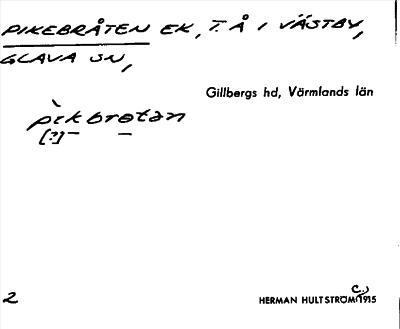 PIKEBRÅTEN EK, T. Å I VÄSTBY,
GLAVA SN,
Gillbergs hd, Värmlands län
pìkbrotan
[?]
2
HERMAN HULTSTRÖM C.) 1915